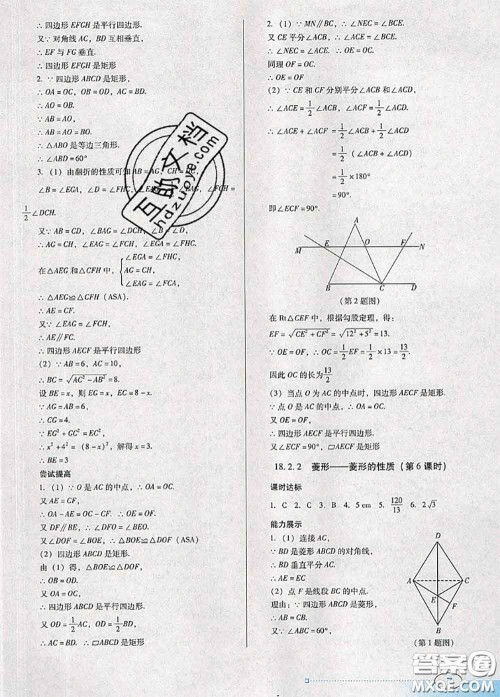 ∴ 四边形 EFGH 是平行四边形.
又∵ 对角线 AC, BD 互相垂直,
∴ EF 与 FG 垂直.
∴ 四边形 EFGH 是矩形.
2. ∵ 四边形 ABCD 是矩形,
∴ OA = OC, OB = OD, AC = BD.
∴ AO = OB.
∵ AB = AO,
∴ AB = AO = BO.
∴ △ABO 是等边三角形.
∴ ∠ABD = 60°
3. (1) 由翻折的性质可知 AB = AG, CH =
∠B = ∠EGA, ∠D = ∠FHC, ∠EGA = ∠FHC =
1/2 ∠DCH.
又∵ AB = CD, ∠BAG = ∠DCH, ∠B = ∠D,
∴ AG = CH, ∠EAG = ∠FCH, ∠EGA = ∠FHC,
在△AEG 和△CFH 中, { ∠EGA = ∠FHC,
AG = CH,
∠EAG = ∠FCH,
∴ △AEG ≌ △CFH (ASA).
∴ AE = CF.
又∵ ∠EAG = ∠FCH,
∴ AE∥FC.
∴ 四边形 AECF 是平行四边形
(2) ∵ AB = 6, AC = 10,
∴ BC = √AC² − AB² = 8.
设 BE = x, 则 EG = x, EC = 8 − x.
∵ AG = AB = 6,
∴ CG = 4.
∵ EG² + GC² = EC²,
∴ x² + 4² = (8 − x)², 解得 x = 3.
尝试提高
1. (1) ∵ O 是 AC 的中点, ∴ OA = OC.
又∵ AE = CF,
∴ OA − AE = OC − CF. ∴ OE = OF.
又∵ DF∥BE, ∴ ∠DFO = ∠BEO.
又∵ ∠DOF = ∠BOE, ∴ △BOE ≌ △DOF (ASA)
(2) 四边形 ABCD 是矩形.
由 (1) 得, △BOE ≌ △DOF,
∴ BO = DO.
又∵ OA = OC,
∴ 四边形 ABCD 是平行四边形.
又∵ OD = 1/2 AC, OD = 1/2 BD,
∴ AC = BD. ∴ 四边形 ABCD 是矩形
2. (1) ∵ MN∥BC, ∴ ∠NEC = ∠BCE.
又 CE 平分 ∠ACB, ∴ ∠ACE = ∠BCE.
∴ ∠NEC = ∠ACE. ∴ OE = OC.
同理 OF = OC.
∴ OE = OF
(2) ∵ CE 和 CF 分别平分 ∠ACB 和 ∠ACD,
∴ ∠ACE = 1/2 ∠ACB, ∠ACF = 1/2 ∠ACD.
∴ ∠ACE + ∠ACF = 1/2 ∠ACB + 1/2 ∠ACD
= 1/2 (∠ACB + ∠ACD)
= 1/2 × 180°
= 90°.
即∠ECF = 90°.
A
M E O F N
B C D
(第 2 题图)
在 Rt△CEF 中, 根据勾股定理, 得:
EF = √CE² + CF² = √12² + 5² = 13.
∵ OE = OF, ∴ OC = 1/2 EF = 1/2 × 13 = 13/2.
因此 OC 的长为 13/2
(3) 当点 O 为 AC 的中点时, 四边形 AECF 是矩形.
∵ 点 O 是 AC 的中点, ∴ OA = OC.
∵ OE = OF,
∴ 四边形 AECF 是平行四边形.
又∵ ∠ECF = 90°, ∴ ▱AECF 是矩形
18.2.2 菱形——菱形的性质 (第 6 课时)
课时达标
1. C 2. C 3. B 4. 5 cm 5. 120/13 6. 2√3
能力展示
1. (1) 连接 AC,
∵ BD 是菱形的对角线,
∴ BD 垂直平分 AC.
∴ AE = EC
(2) 点 F 是线段 BC 的中点.
理由: ∵ 四边形 ABCD 是菱形,
∴ AB = CB.
又∵ ∠ABC = 60°,
D
A C
E
F
B
(第 1 题图)
互助文档
hdzuoye.com
答案圈
MXQE.COM